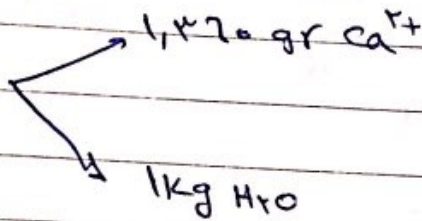 ۱,۳۶۰ gr Ca۲+
1kg H۲O